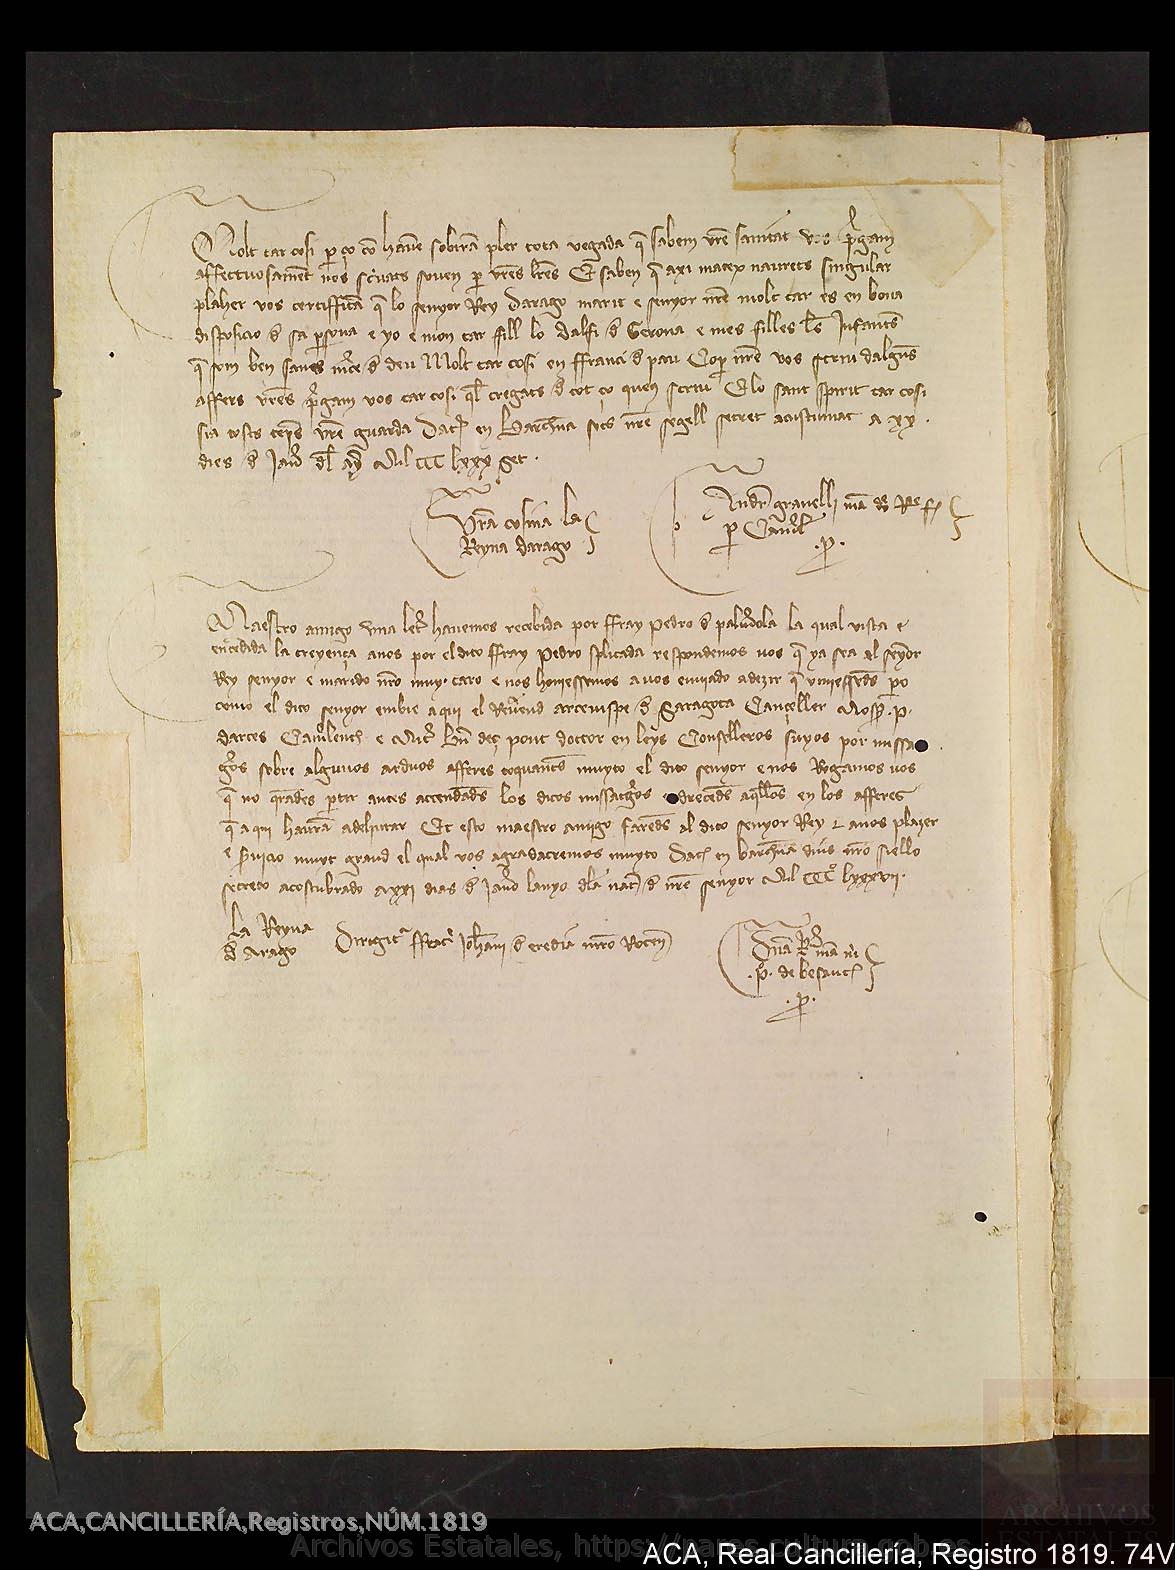 Molt car cosi p ço co haue sobira pler tota vegada q sabem vre sanitat vos pgam
affectuosament nos scriuats souen p vres lres E saben q axi matex naurets singular
plaher vos certiffica q lo senyor Rey Darago marit e senyor nre molt car es en bona
disposicio d sa psona e yo e mon car fill lo dalfi d Gerona e mes filles les Infantes
q som ben sanes mce d deu Molt car cosi en ffranci d pau Cop nre vos scriu dalgus
affers vres pgam vos car cosi ql cregats d tot ço quen scriu E lo sant spirit car cosi
sia tosts temps vre guarda Dat en Barchna sots nre segell secret acustumat a xx.
dies d Jan dl any Mil CCC lxxx set.
Vra cosina la
Reyna darago
Andr grauelli ma d Re f
p Caml
.p.
Maestro amigo vna letr hauemos recebida por ffray Pedro d paludola la qual vista e
entedida la creyença anos por el dito ffray Pedro splicada respondemos vos q ya sea el senyor
Rey senyor e marido nro muy caro e nos houiessemos auos enuiado a dezir q vinieseds po
como el dito senyor embie aqui el Reuend arceuispe d Saragoça Cançeller Mosse .p.
darces Camlench e Mic Bn dez pont doctor en leys Conselleros suyos por missa
gos sobre algunos arduos afferes toquants muyto el dito senyor e nos Rogamos vos
q no qrades ptir antes attendades los ditos missatgos edreceds aqllos en los afferes
q aqui haura a desputar Et esto maestro amigo fareds al dito senyor Rey e anos plazer
e seruicio muyt grand el qual vos agradaceremos muyto Dat en barchna dius nro siello
secreto acostubrado a xxi dias d Jano lanyo dla nat d nre senyor Mil CCC lxxxvii.
La Reyna
d Arago
Dirigit ffrat Johani d eredia
Dna Ra
ma m
.p. de besant
.p.
ACA,CANCILLERÍA,Registros,NÚM.1819
Archivos Estatales, https://pares.cultura.gob.es
ARCHIVOS
ESTATALES
ACA, Real Cancillería, Registro 1819. 74V